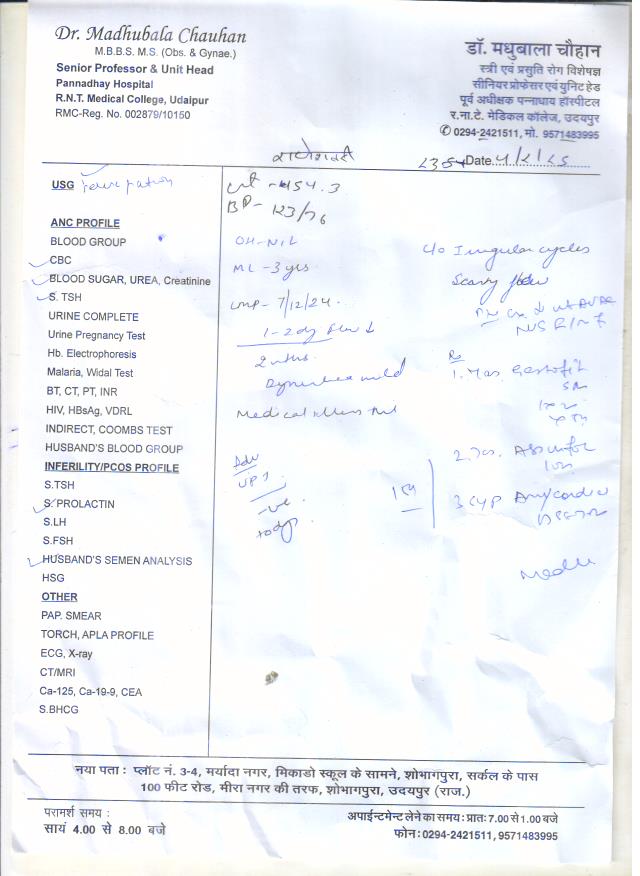 Dr. Madhubala Chauhan
M.B.B.S. M.S. (Obs. & Gynae.)
Senior Professor & Unit Head
Pannadhay Hospital
R.N.T. Medical College, Udaipur
RMC-Reg. No. 002879/10150
डॉ. मधुबाला चौहान
स्त्री एवं प्रसुति रोग विशेषज्ञ
सीनियर प्रोफेसर एवं युनिट हेड
पूर्व अधीक्षक पन्नाधाय हॉस्पीटल
र.ना.टे. मेडिकल कॉलेज, उदयपुर
✆ 0294-2421511, मो. 9571483995
Date 4/2/25
USG
ANC PROFILE
BLOOD GROUP
CBC
BLOOD SUGAR, UREA, Creatinine
S. TSH
URINE COMPLETE
Urine Pregnancy Test
Hb. Electophoresis
Malaria, Widal Test
BT, CT, PT, INR
HIV, HBsAg, VDRL
INDIRECT, COOMBS TEST
HUSBAND'S BLOOD GROUP
INFERILITY/PCOS PROFILE
S.TSH
S. PROLACTIN
S.LH
S.FSH
HUSBAND'S SEMEN ANALYSIS
HSG
OTHER
PAP. SMEAR
TORCH, APLA PROFILE
ECG, X-ray
CT/MRI
Ca-125, Ca-19-9, CEA
S.BHCG
wt - 54.3
BP - 123/76
OH-NIL
ML - 3 yrs
LMP - 7/12/24.
1-2 dy flow ↓
Medical illness Nil
Adv
UPT
-ve
today
c/o Irregular cycles
Scanty flow
Rx
नया पता : प्लॉट नं. 3-4, मर्यादा नगर, मिकाडो स्कूल के सामने, शोभागपुरा, सर्कल के पास
100 फीट रोड, मीरा नगर की तरफ, शोभागपुरा, उदयपुर (राज.)
परामर्श समय :
सायं 4.00 से 8.00 बजे
अपाईन्टमेन्ट लेने का समय : प्रातः 7.00 से 1.00 बजे
फोन : 0294-2421511, 9571483995